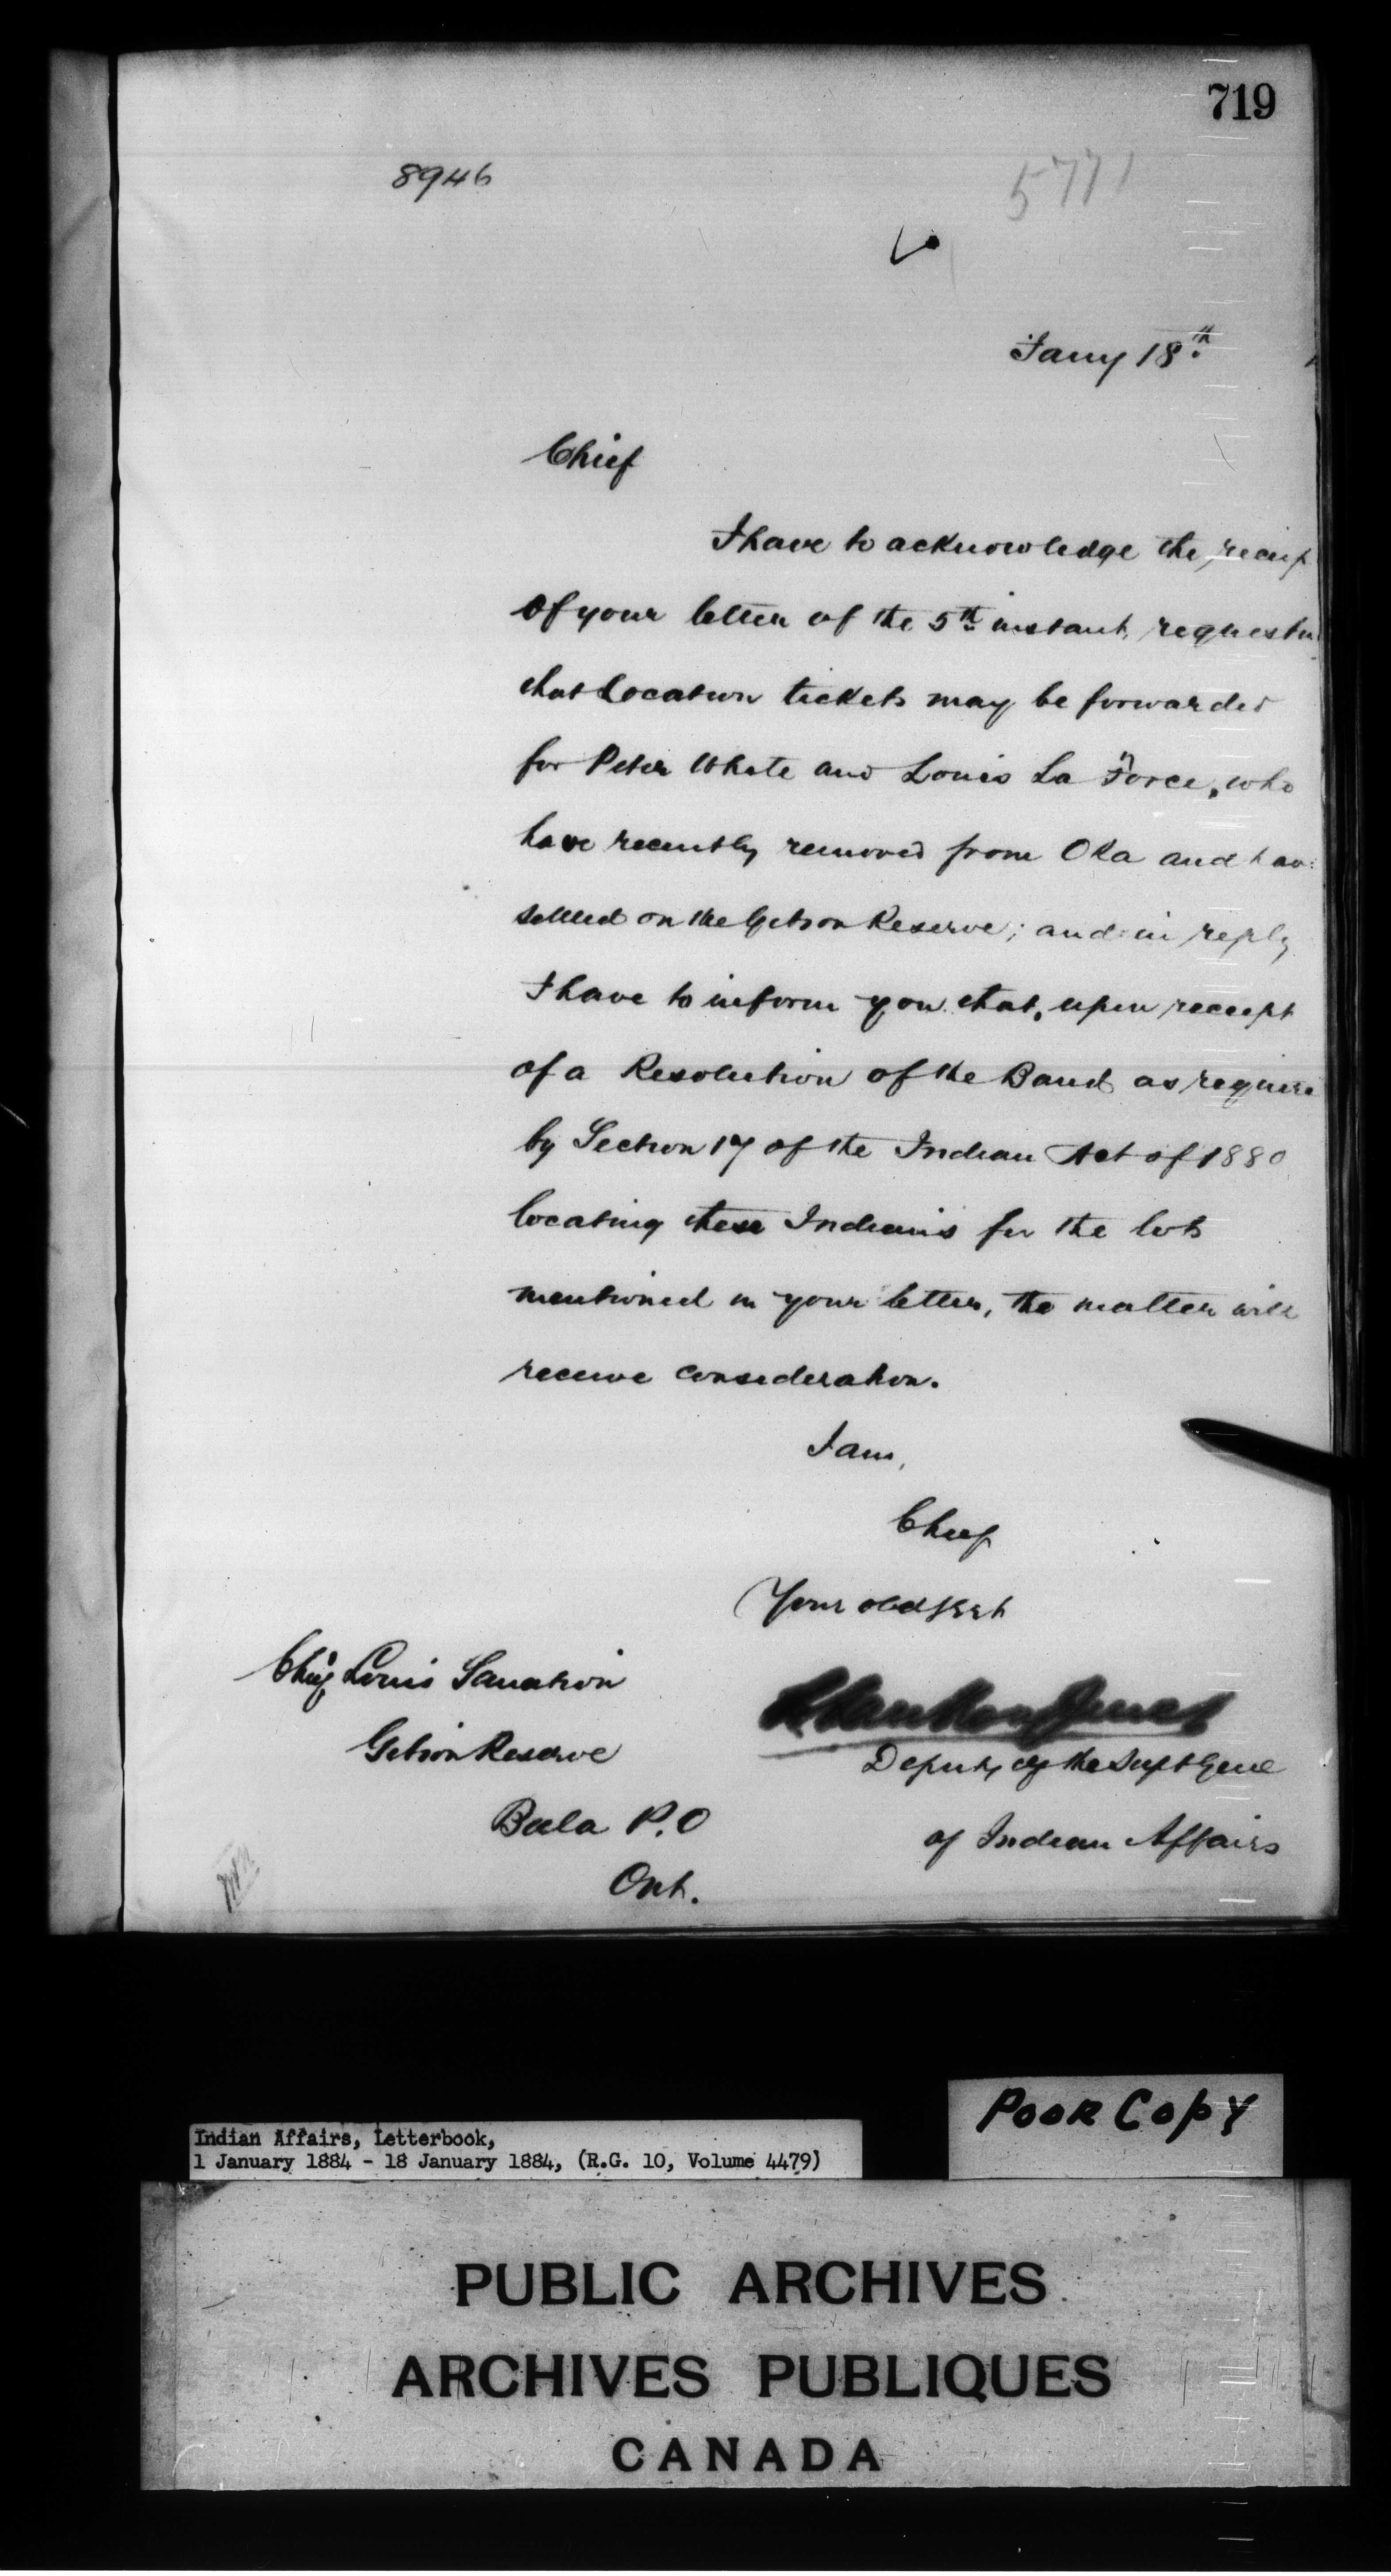 719
8946
5771
Jany 18th
Chief
I have to acknowledge the receip
of your letter of the 5th instant, requestin
that Location tickets may be forwarded
for Peter White and Louis La Force, who
have recently removed from Oka and hav
settled on the Gibson Reserve; and in reply
I have to inform you that, upon receipt
of a Resolution of the Band as require
by Section 17 of the Indian Act of 1880
locating these Indians for the lots
mentioned in your letter, the matter will
receive consideration.
I am,
Chief
Your obed Servt
Chief Louis Sanation
L VanKoughnet
Gibson Reserve
Deputy of the Supt Genl
Bala P.O
of Indian Affairs
Ont.
Poor Copy
Indian Affairs, Letterbook,
1 January 1884 - 18 January 1884, (R.G. 10, Volume 4479)
PUBLIC ARCHIVES
ARCHIVES PUBLIQUES
CANADA